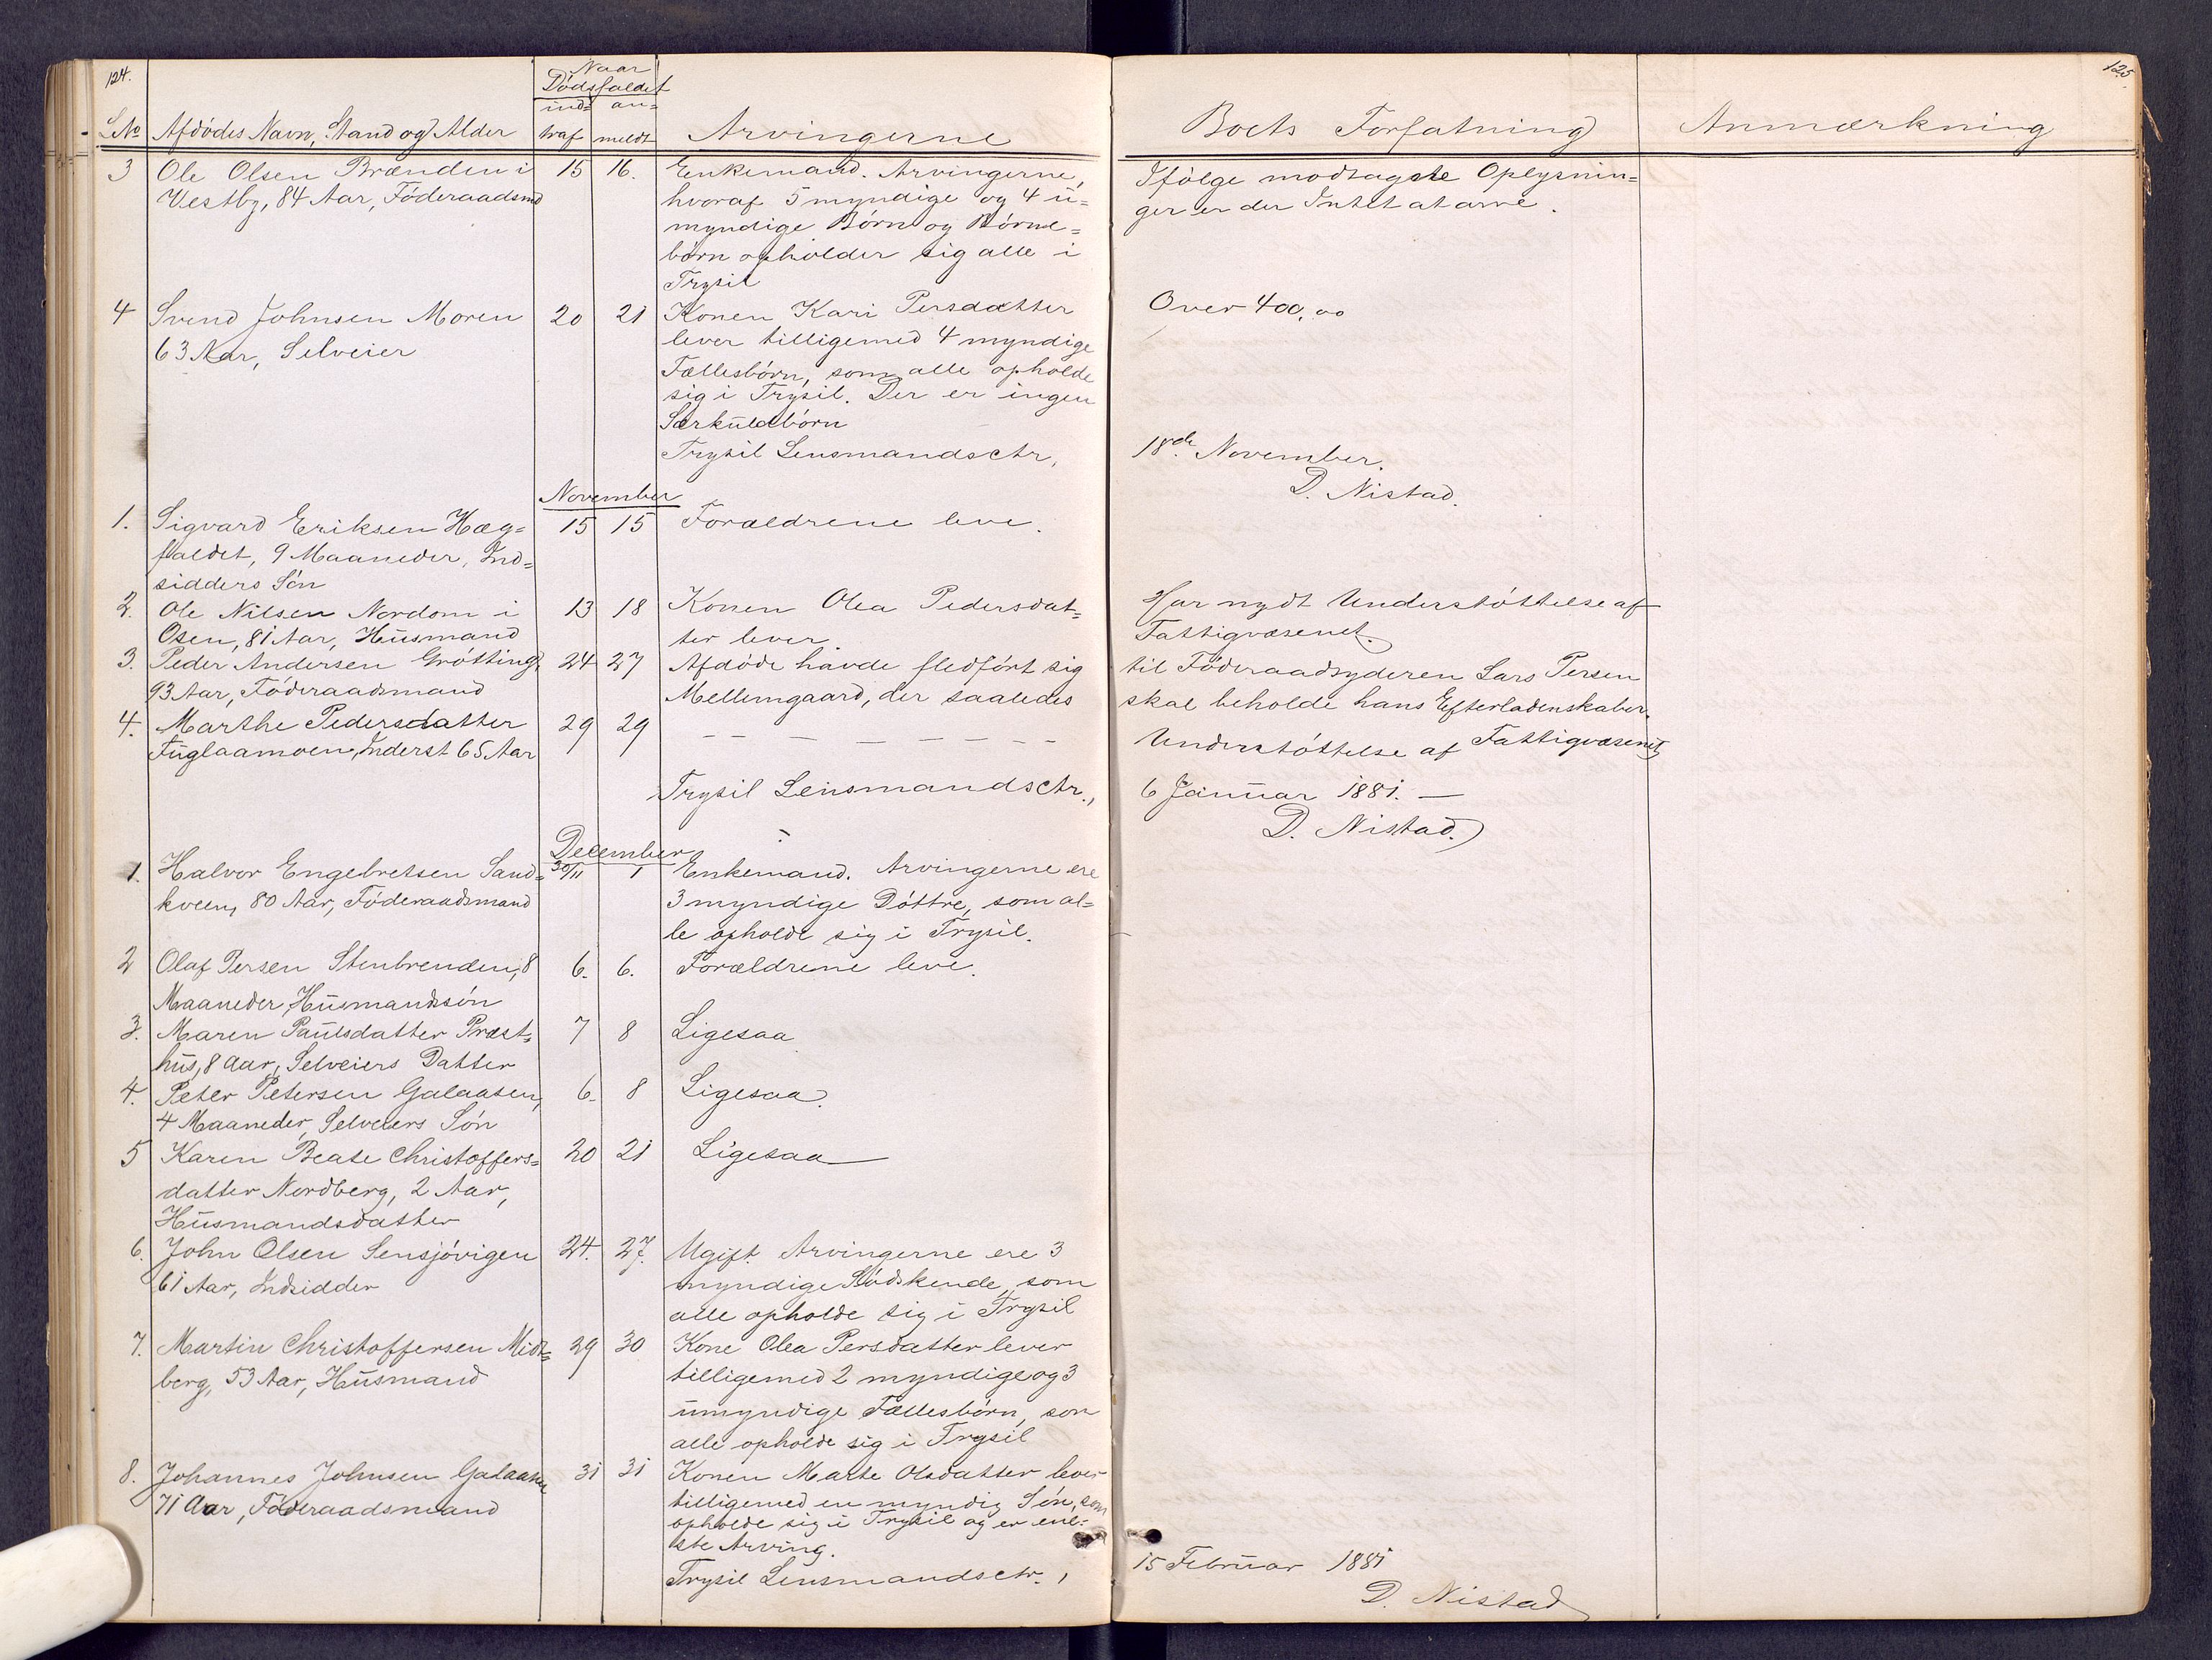 124.
Naar
Dødsfaldet
ind= an=
LNo Afdødes Navn, Stand og Alder traf meldt Arvingerne
3 Ole Olsen Brænden i 15 16. Enkemand. Arvingerne,
Vestby, 84 Aar, Föderaadsmd hvoraf 5 myndige og 4 u=
myndige Børn og Børne=
børn opholder sig alle i
Trysil
4 Svend Johnsen Moren 20 21 Konen Kari Persdatter
63 Aar, Selveier lever tilligemed 4 myndige
Fællesbørn, som alle opholde
sig i Trysil. Der er ingen
Særkuldbørn
Trysil Lensmandsctr,
November
1. Sigvard Eriksen Hæg= 15 15 Forældrene leve.
faldet, 9 Maaneder, Ind=
sidders Søn
2. Ole Nilsen Nordom i 13 18 Konen Olea Pedersdat=
Osen, 81 Aar, Husmand ter lever
3. Peder Andersen Grøtting, 24 27 Afdøde havde fledført sig
93 Aar, Föderaadsmand Mellemgaard, der saaledes
4. Marthe Pedersdatter 29 29 — — — — — — —
Fuglaamoen, Inderst 65 Aar
Trysil Lensmandsctr.,
December
1. Halvor Engebretsen Sand= 30/11 1 Enkemand. Arvingerne ere
kveen, 80 Aar, Föderaadsmand 3 myndige Døttre, som al=
le opholde sig i Trysil.
2 Olaf Persen Stenbrenden, 8 6. 6. Forældrene leve.
Maaneder, Husmandssøn
3. Maren Paulsdatter Præst= 7 8 Ligesaa
hus, 8 Aar, Selveiers Datter
4. Peter Petersen Galaasen, 6. 8 Ligesaa.
4 Maaneder, Selveiers Søn
5 Karen Beate Christoffers= 20 21 Ligesaa
datter Nordberg, 2 Aar,
Husmandsdatter
6. John Olsen Sensjøvigen 24. 27. Ugift. Arvingerne ere 3
61 Aar, Indsidder myndige Sødskende, som
alle opholde sig i Trysil
7. Martin Christoffersen Midt= 29 30 Kone Olea Persdatter lever
berg, 53 Aar, Husmand tilligemed 2 myndige og 3
umyndige Fællesbørn, som
alle opholde sig i Trysil
8. Johannes Johnsen Galaasen 31 31 Konen Marte Olsdatter lever
71 Aar, Föderaadsmand tilligemed en myndig Søn, som
opholde sig i Trysil og er ene=
ste Arving.
Trysil Lensmandsctr.,
125
Boets Forfatning Anmærkning
Ifølge modtagete Oplysnin=
ger er der Intet at arve.
Over 400,00
18de November.
D. Nistad.
Har nydt Understøttelse af
Fattigvæsenet.
til Föderaadsyderen Lars Persen
skal beholde hans Efterladenskaber.
Understøttelse af Fattigvæsenet
6 Januar 1881. —
D. Nistad.
15 Februar 1881
D. Nistad